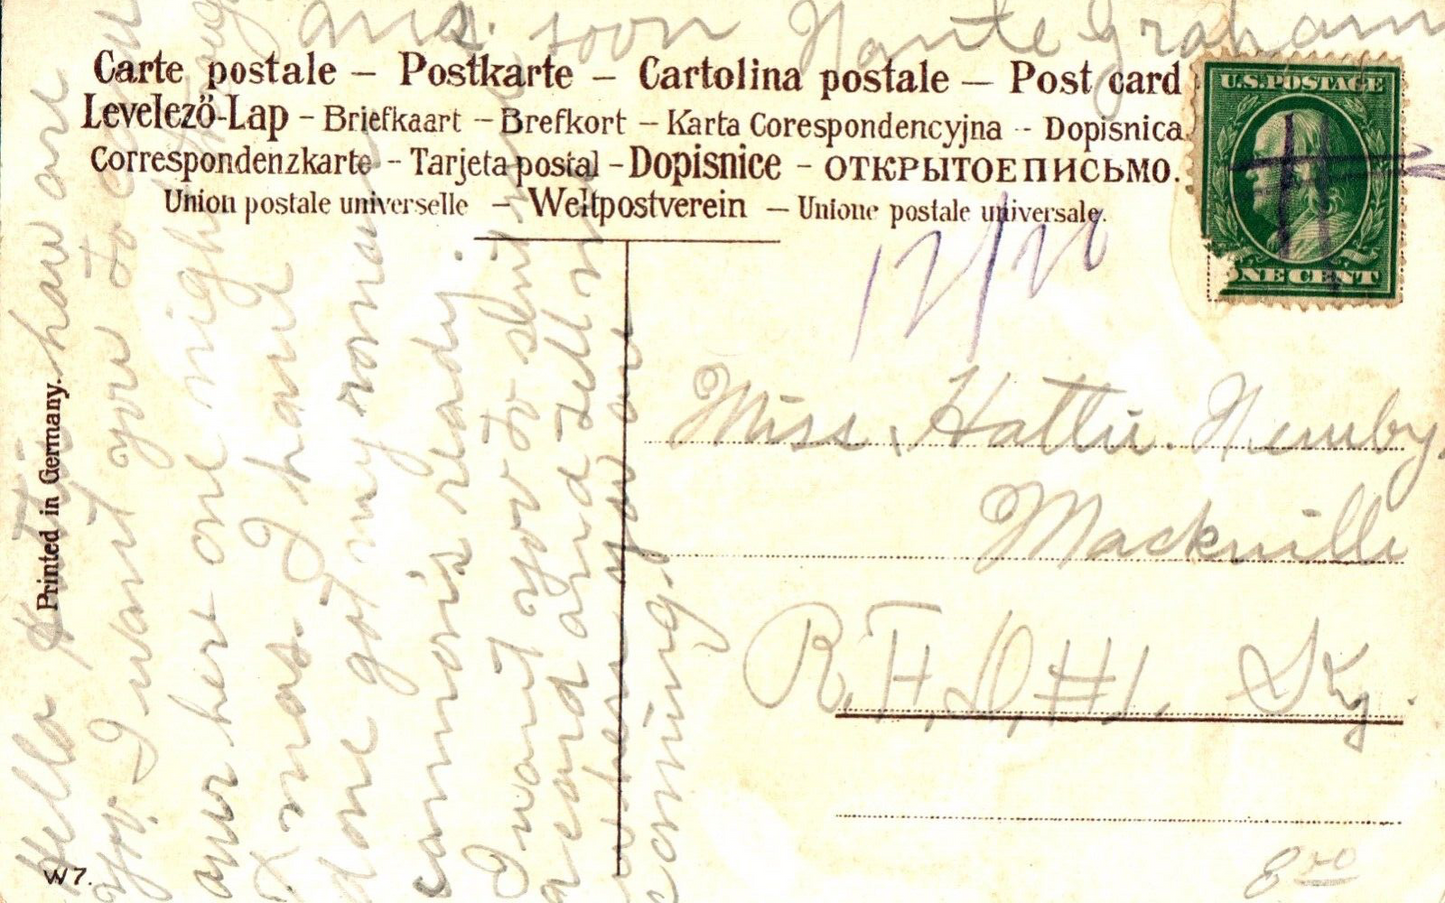 ans. soon Nante Graham
Carte postale – Postkarte – Cartolina postale – Post card
Levelező-Lap – Briefkaart – Brefkort – Karta Corespondencyjna -- Dopisnica.
Correspondenzkarte – Tarjeta postal – Dopisnice – ОТКРЫТОЕ ПИСЬМО.
Union postale universelle – Weltpostverein – Unione postale universale.
U.S. POSTAGE
ONE CENT
12/20
Printed in Germany.
W 7.
Hello Hattie how are
you. I want you to come
over here one night
Xmas. I have
done got my roman
cannons ready.
I want you to send me
a card and tell me
when you are
coming.
Miss. Hattie. Nemby
Mackville
R.F.D. #1. Ky.
800